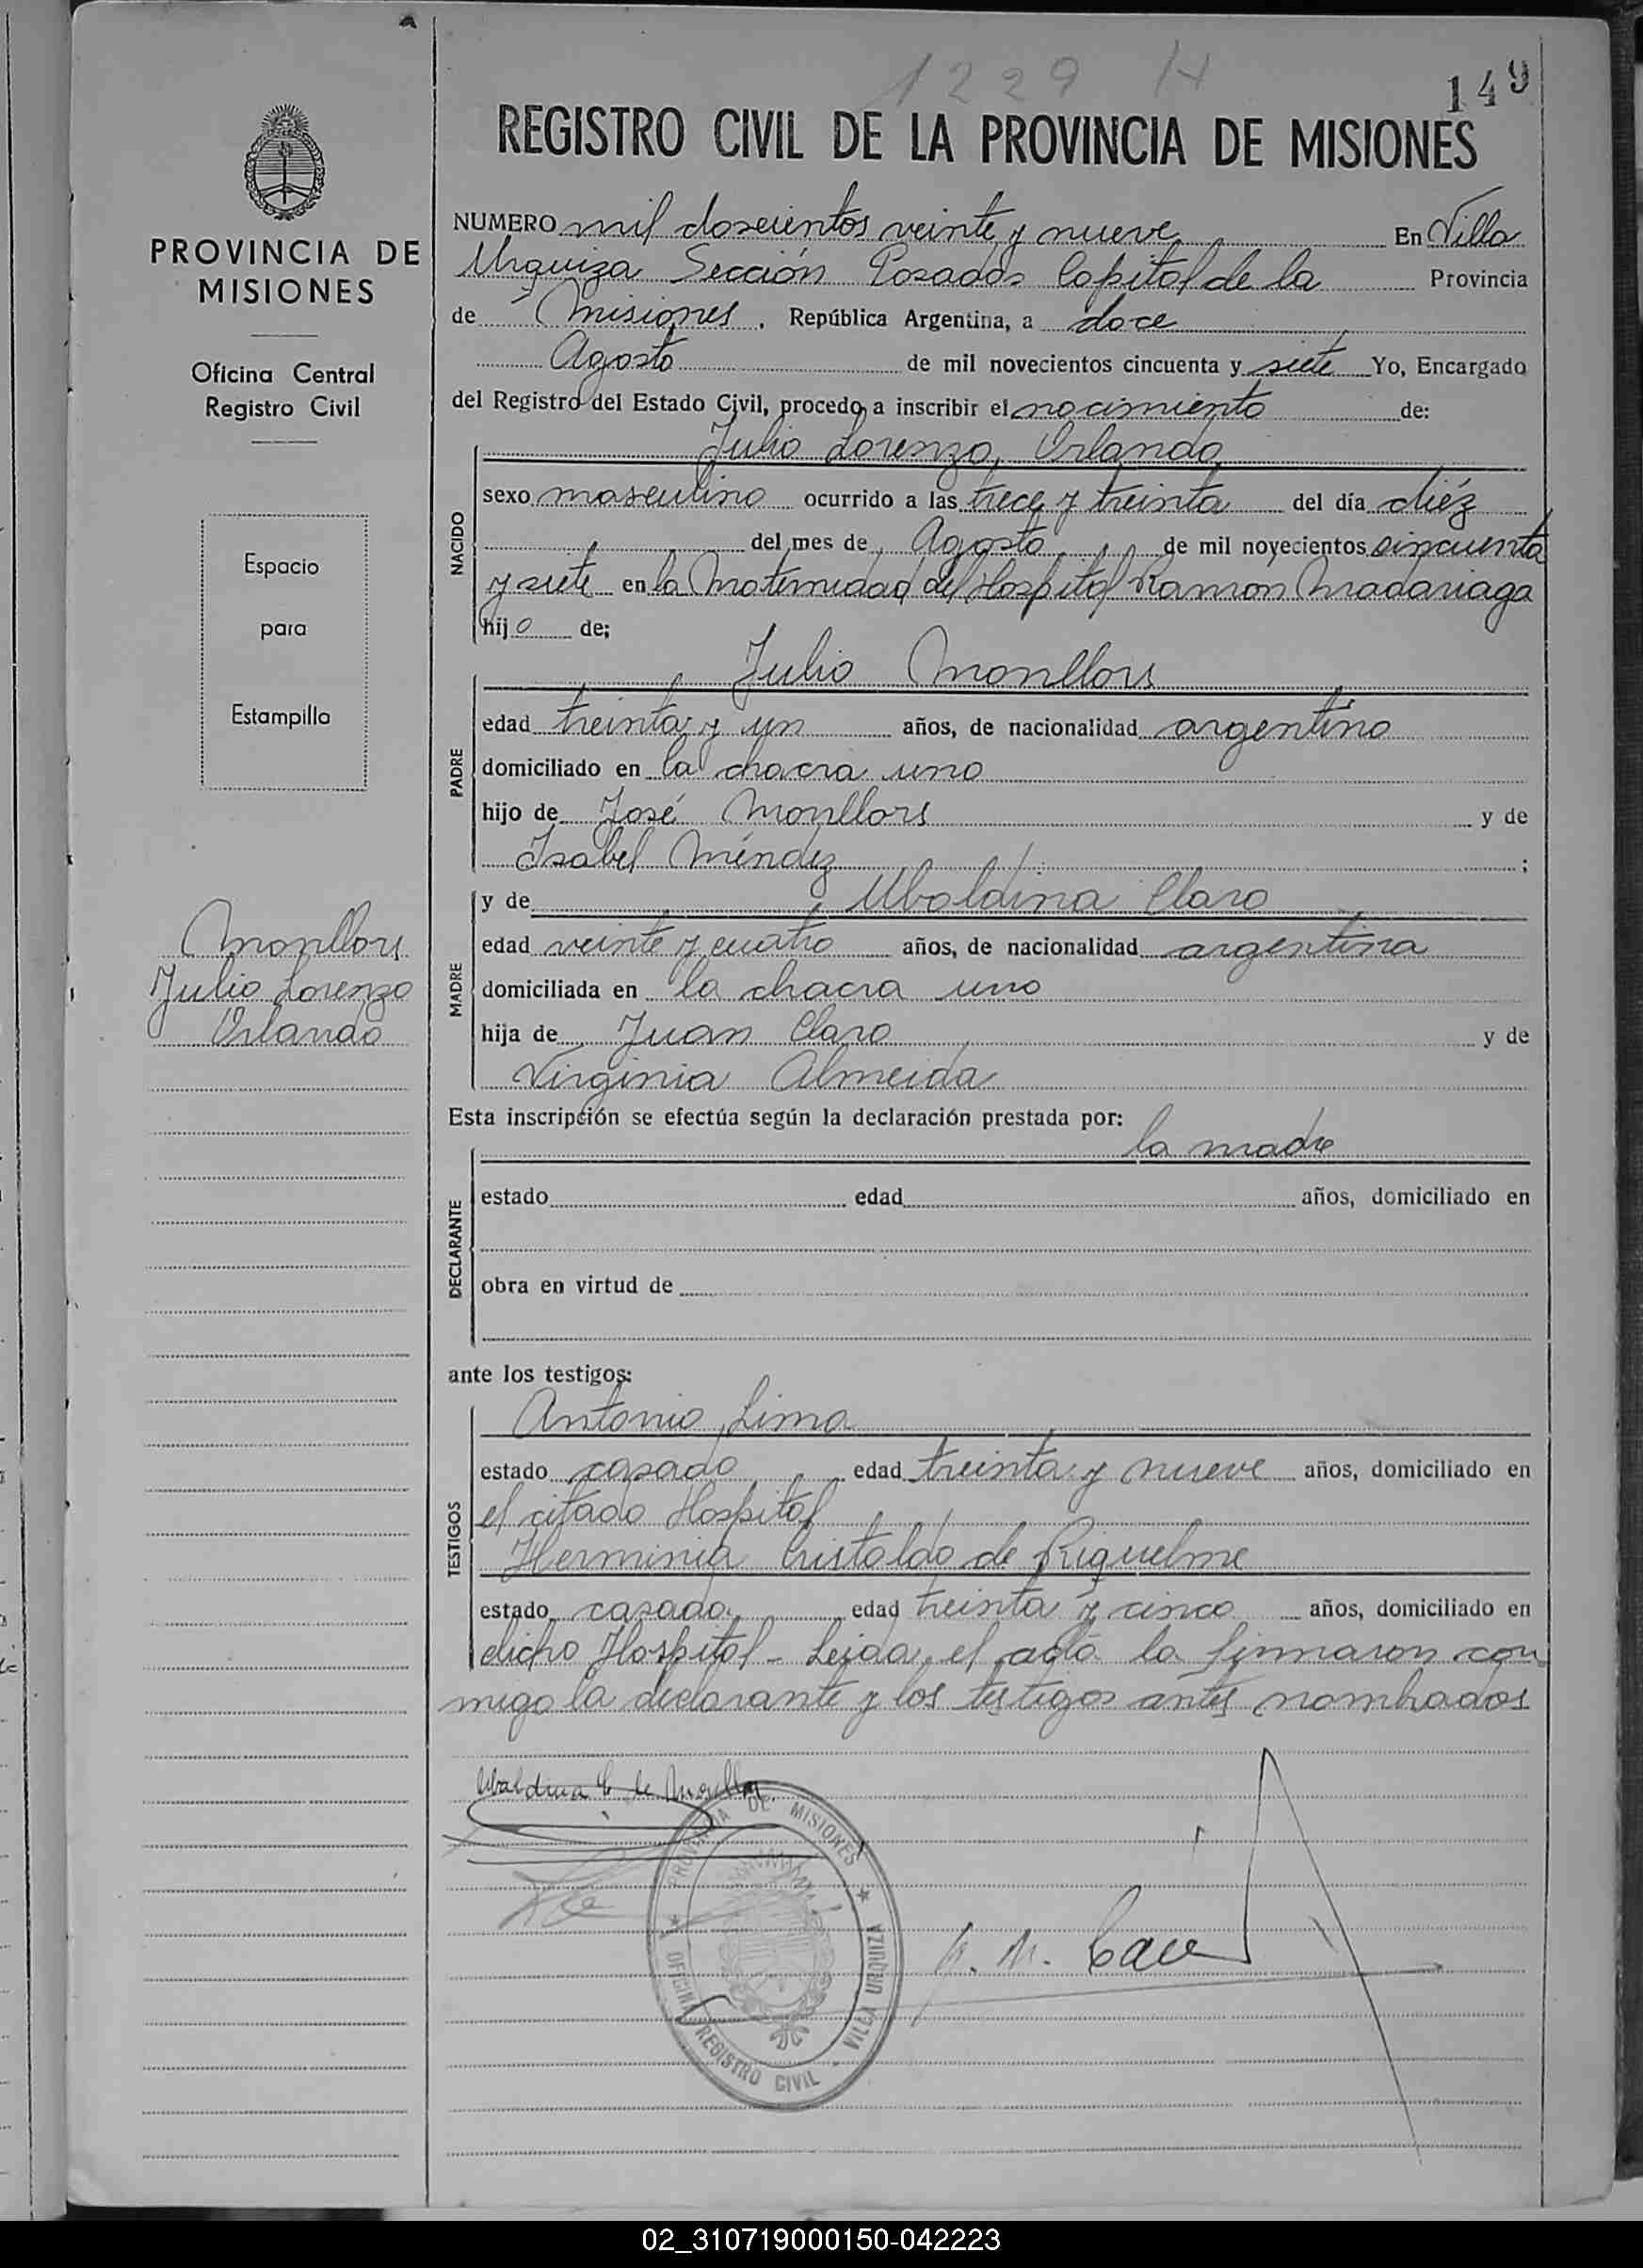 1229 H
149
REGISTRO CIVIL DE LA PROVINCIA DE MISIONES
PROVINCIA DE
MISIONES
Oficina Central
Registro Civil
Espacio
para
Estampilla
Monllors
Julio Lorenzo
Orlando
NUMERO mil doscientos veinte y nueve En Villa
Urquiza Sección Posadas Capital de la Provincia
de Misiones. República Argentina, a doce
Agosto de mil novecientos cincuenta y siete Yo, Encargado
del Registro del Estado Civil, procedo a inscribir el nacimiento de:
NACIDO
Julio Lorenzo, Orlando
sexo masculino ocurrido a las trece y treinta del día diéz
del mes de Agosto de mil novecientos cincuenta
y siete en la Maternidad del Hospital Ramon Madariaga
hijo de;
PADRE
Julio Monllors
edad treinta y un años, de nacionalidad argentino
domiciliado en la chacra uno
hijo de José Monllors y de
Isabel Méndez ;
MADRE
y de Ubaldina Claro
edad veinte y cuatro años, de nacionalidad argentina
domiciliada en la chacra uno
hija de Juan Claro y de
Virginia Almeida
Esta inscripción se efectúa según la declaración prestada por:
DECLARANTE
la madre
estado edad años, domiciliado en
obra en virtud de
ante los testigos:
TESTIGOS
Antonio Lima
estado casado edad treinta y nueve años, domiciliado en
el citado Hospital
Herminia Cristaldo de Riquelme
estado casada edad treinta y cinco años, domiciliado en
dicho Hospital - Leida el acta la firmaron con
migo la declarante y los testigos antes nombrados
Ubaldina C. de Monllors
PROVINCIA DE MISIONES
OFICINA REGISTRO CIVIL - VILLA URQUIZA
02_310719000150-042223